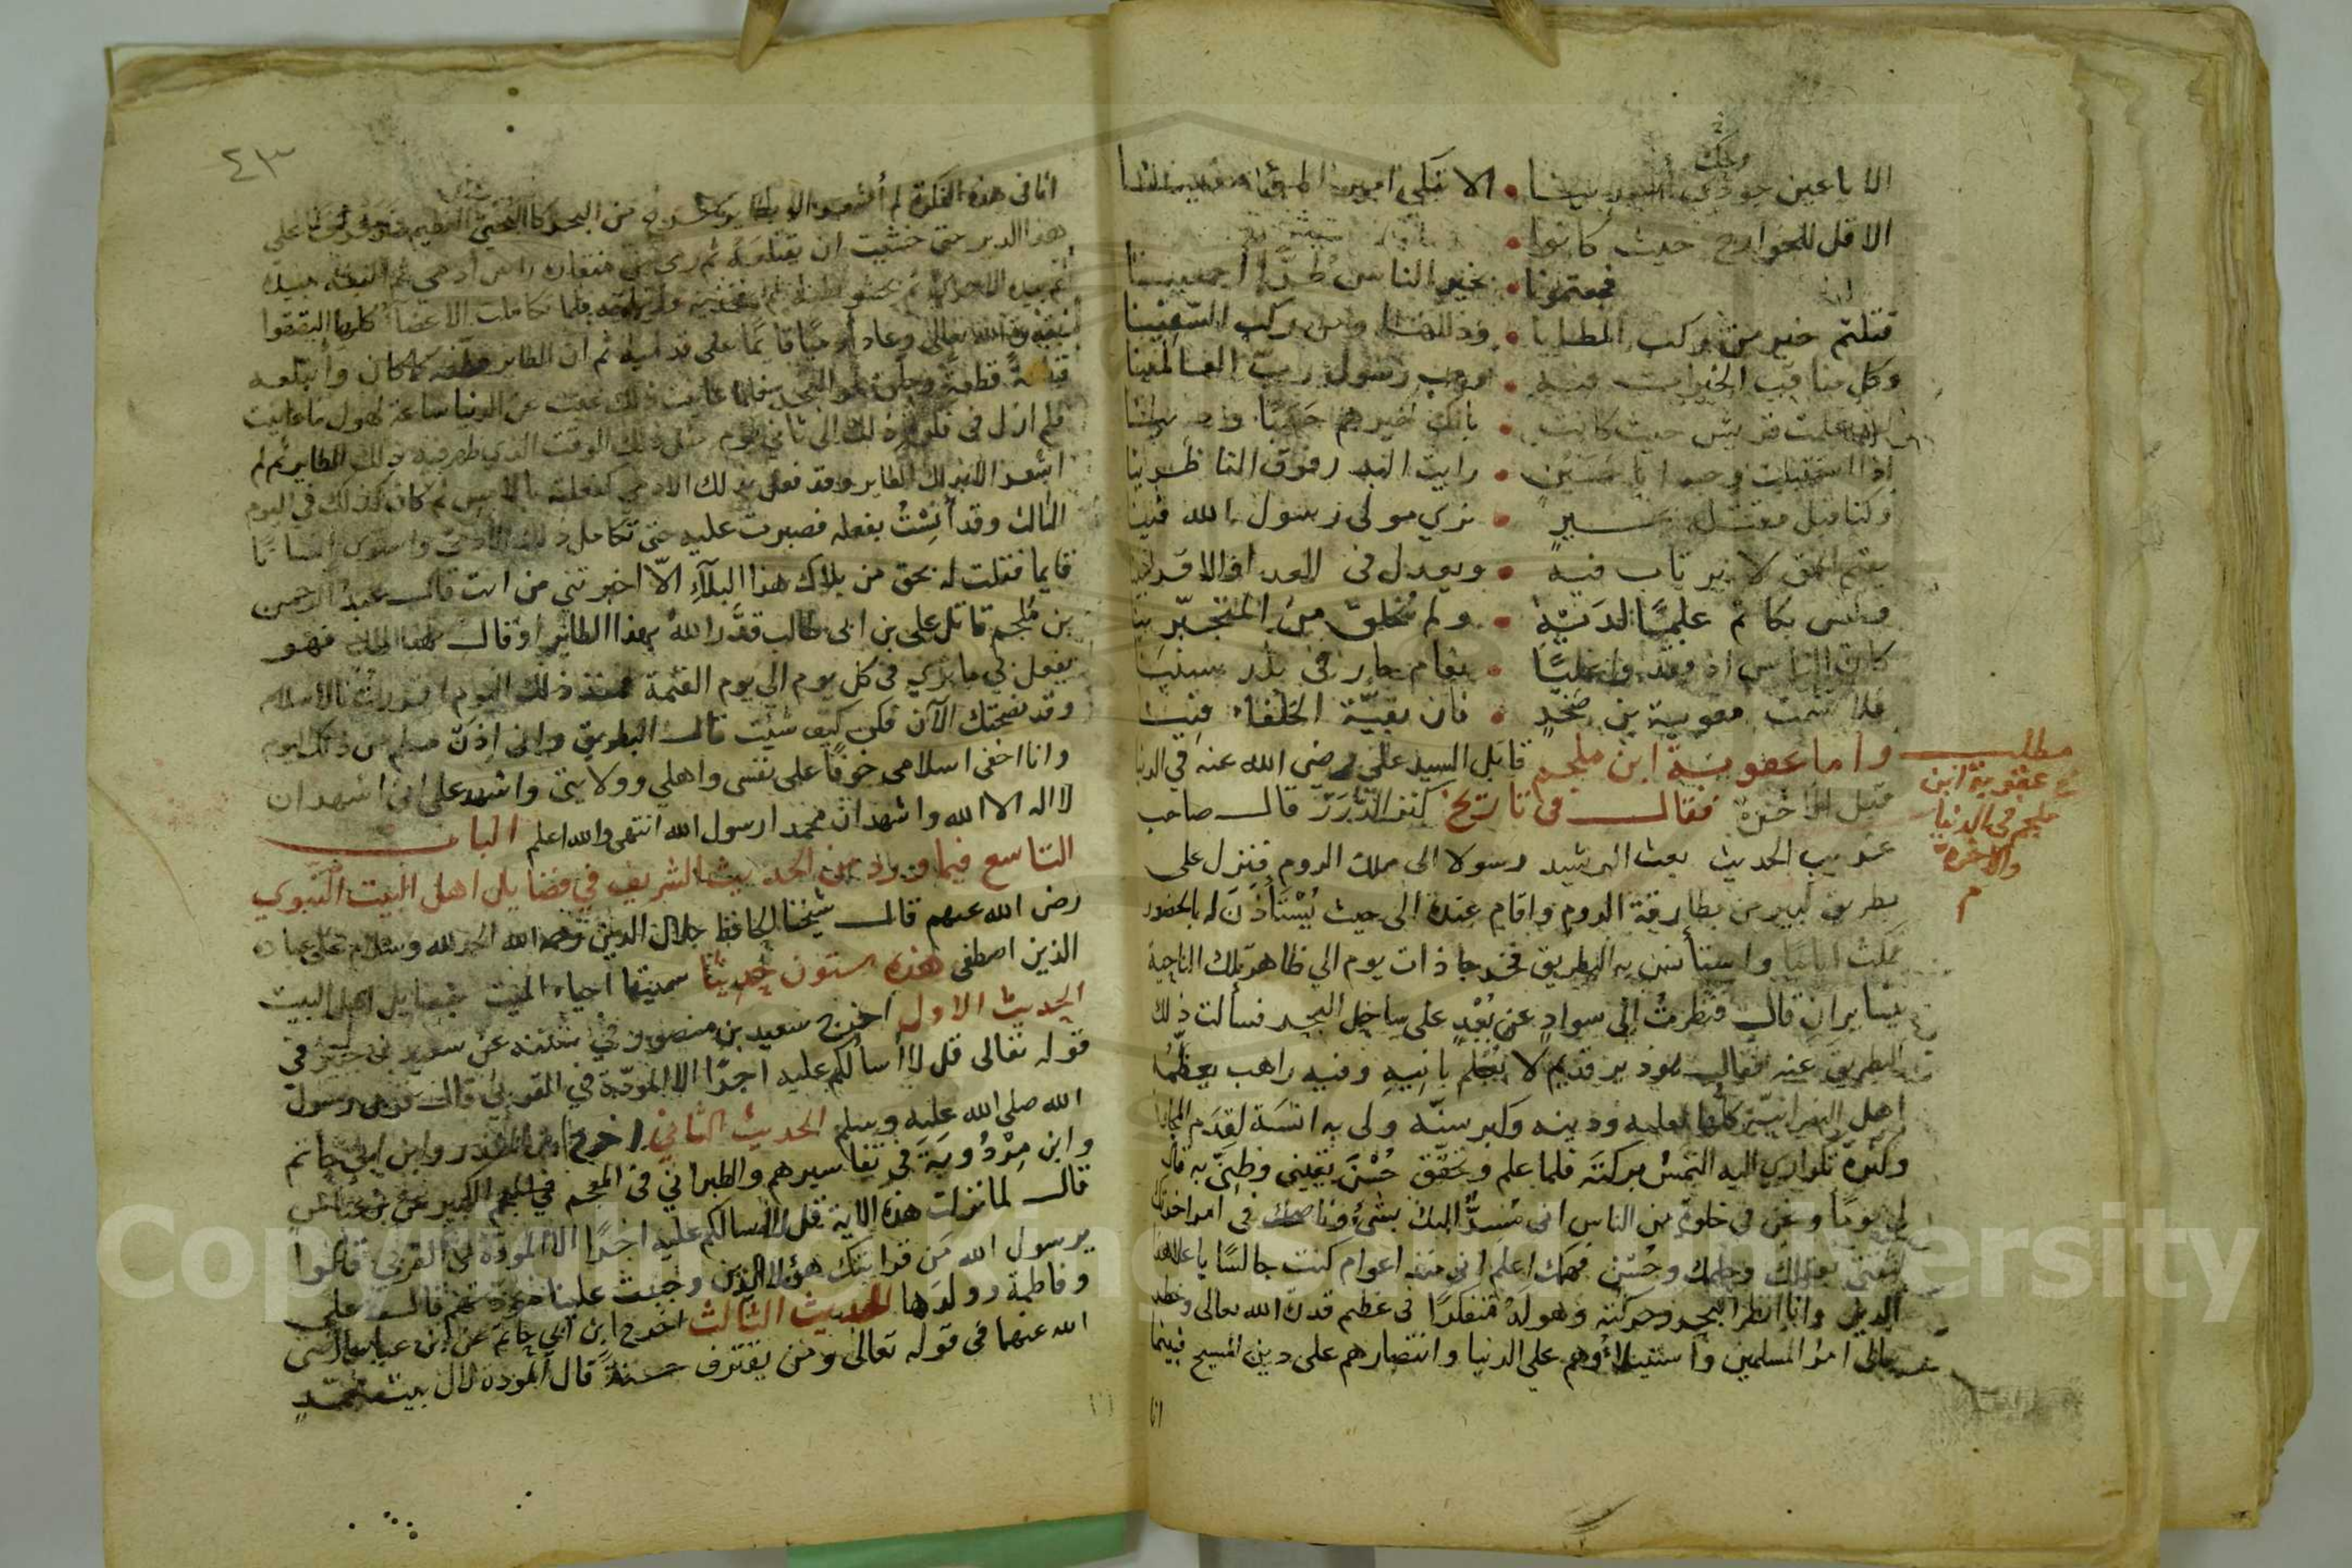 الا يا عين ويحك اسعدينا • الا تبكي امير المؤمنينا
الا قل للخوارج حيث كانوا •
فجعتمونا • بخير الناس طرًّا أجمعينا
قتلتم خير من ركب المطايا • وذللها ومن ركب السفينا
وكل مناقب الخيرات فيه • وحب رسول رب العالمينا
علمت قريش حيث كانت • بانك خيرهم حسبًا ودينا
اذا استقبلت وجه ابا حسين • رايت البدر فوق الناظرينا
وكنا قبل مقتله بخير • نري مولى رسول الله فينا
يقيم الحق لا يرتاب فيه • ويعدل في العدا والاقربينا
وليس بكاتم علمًا لديه • ولم يخلق من المتجبرينا
كان الناس اذ فقدوا عليًّا • نعام حار في بلد سنينا
فلا تشمت معوية بن صخرٍ • فان بقيّة الخلفاء فينا
واما عقوبة ابن ملجم قاتل السيد علي رضي الله عنه في الدنيا
قبل الآخرة فقال في تاريخ كنز الدرر قال صاحب
غريب الحديث بعث الرشيد رسولا الى ملك الروم فنزل على
بطريق كبير من بطارقة الروم واقام عنده الى حيث يُسْتَأذَنَ له بالحضور
فمكث اياما واستأنس به البطريق فخرجا ذات يوم الي ظاهر تلك الناحية
يتسايران قال فنظرتُ الى سوادٍ عن بُعْدٍ على ساحل البحر فسألت ذلك
البطريق عنه فقال هو دير قديم لا يُعْلم بانيه وفيه راهب يعظمه
اهل النصرانيّة كلها لعلمه ودينه وكبر سنّه ولى به انسة لقدم
وكثرة تلوادي اليه التمس بركته فلما علم وتحقق حُسْنَ يقيني وظنّي به قال
لي يومًا ونحن في خلوة من الناس اني مُسِرٌّ اليك بشئٍ وناصحك في امر
لثقتي بعقلك وحلمك وحُسْن فهمك اعلم انى منذ اعوام كنت جالسًا باعلا هذا
الدير وانا انظر البحر وحركته وهوله متفكرًا في عظيم قدرة الله تعالى وخطر
ببالى امرُ المسلمين واستيلاؤهم علي الدنيا وانتصارهم على دين المسيح فبينما
انا
مطلب
عقوبة ابن
ملجم في الدنيا
والاخرة
م
٤٣
انا في هذه الفكرة لم أشعر الا بطاير كبير خرج من البحر كالبختى العظيم على
هذا الدير حتى خشيت ان يقتلوه ثم رمى من منقاره راس أدمى ثم
فلما تكاملت الاعضاَ كلها التفقوا
بقدرة الله تعالى وعاد أدميًا قايمًا على قدميه ثم ان الطاير كما كان وابتلعه
قطعةً قطعةً وطار نحو البحر فلما عاينت ذلك غبت عن الدنيا ساعة لهول ما عاينت
فلم ازل في فكرة ذلك الى ثاني يوم مثل ذلك الوقت الذي ظهر فيه ذلك الطاير ثم لم
اشعر الا بذلك الطاير وقد فعل بذلك الادمي كفعله بالامس ثم كان كذلك في اليوم
الثالث وقد أنِسْتُ بفعله فصبرت عليه حتى تكامل ذلك الادمى واستوى انسانًا
قايما فقلت له بحق من بلاك هذا البلآءِ الّا اخبرتني من انت قال عبد الرحمن
بن مُلجم قاتل علي بن ابى طالب قدَّر اللهُ بهذا الطاير او قال هذا الملك فهو
يفعل بي ما تري في كل يوم الي يوم القيمة فمنذ ذلك اليوم اقررت بالاسلام
وقد نصحتك الآن فكن كيف شئت قال البطريق وانى اذن مسلم من ذلك اليوم
وانا اخفى اسلامى خوفًا على نفسى واهلي وولايتى واشهد على انى اشهد ان
لا اله الا الله واشهد ان محمدا رسول الله انتهى والله اعلم الباب
التاسع فيما ورد من الحديث الشريف في فضايل اهل البيت النبوي
رضى الله عنهم قال شيخنا الحافظ جلال الدين رحمه الله الحمد لله وسلام على عباده
الذين اصطفى هذه ستون حديثًا سميتها احياء الميت بفضايل اهل البيت
الحديث الاول اخرج سعيد بن منصور في سننه عن سعيد بن جبير في
قوله تعالى قل لا أسألكم عليه اجرًا الا المودّة في القربى قال قربى رسول
الله صلى الله عليه وسلم الحديث الثاني اخرج ابن المنذر وابن ابي حاتم
وابن مرْدُويَهَ في تفاسيرهم والطبراني في المعجم الكبير عن ابن عباس
قال لما نزلت هذه الاية قل لا اسالكم عليه اجرًا الا المودة في القربى قالوا
يرسول الله مَن قرابتك هؤلاء الذين وجبت علينا مودتهم قال علي
وفاطمة وولدَها الحديث الثالث اخرج ابن ابي حاتم عن ابن عباس رضى
الله عنهما في قوله تعالى ومن يقترف حسنةً قال المودة لال بيت محمدٍ
Copyright © King Saud University